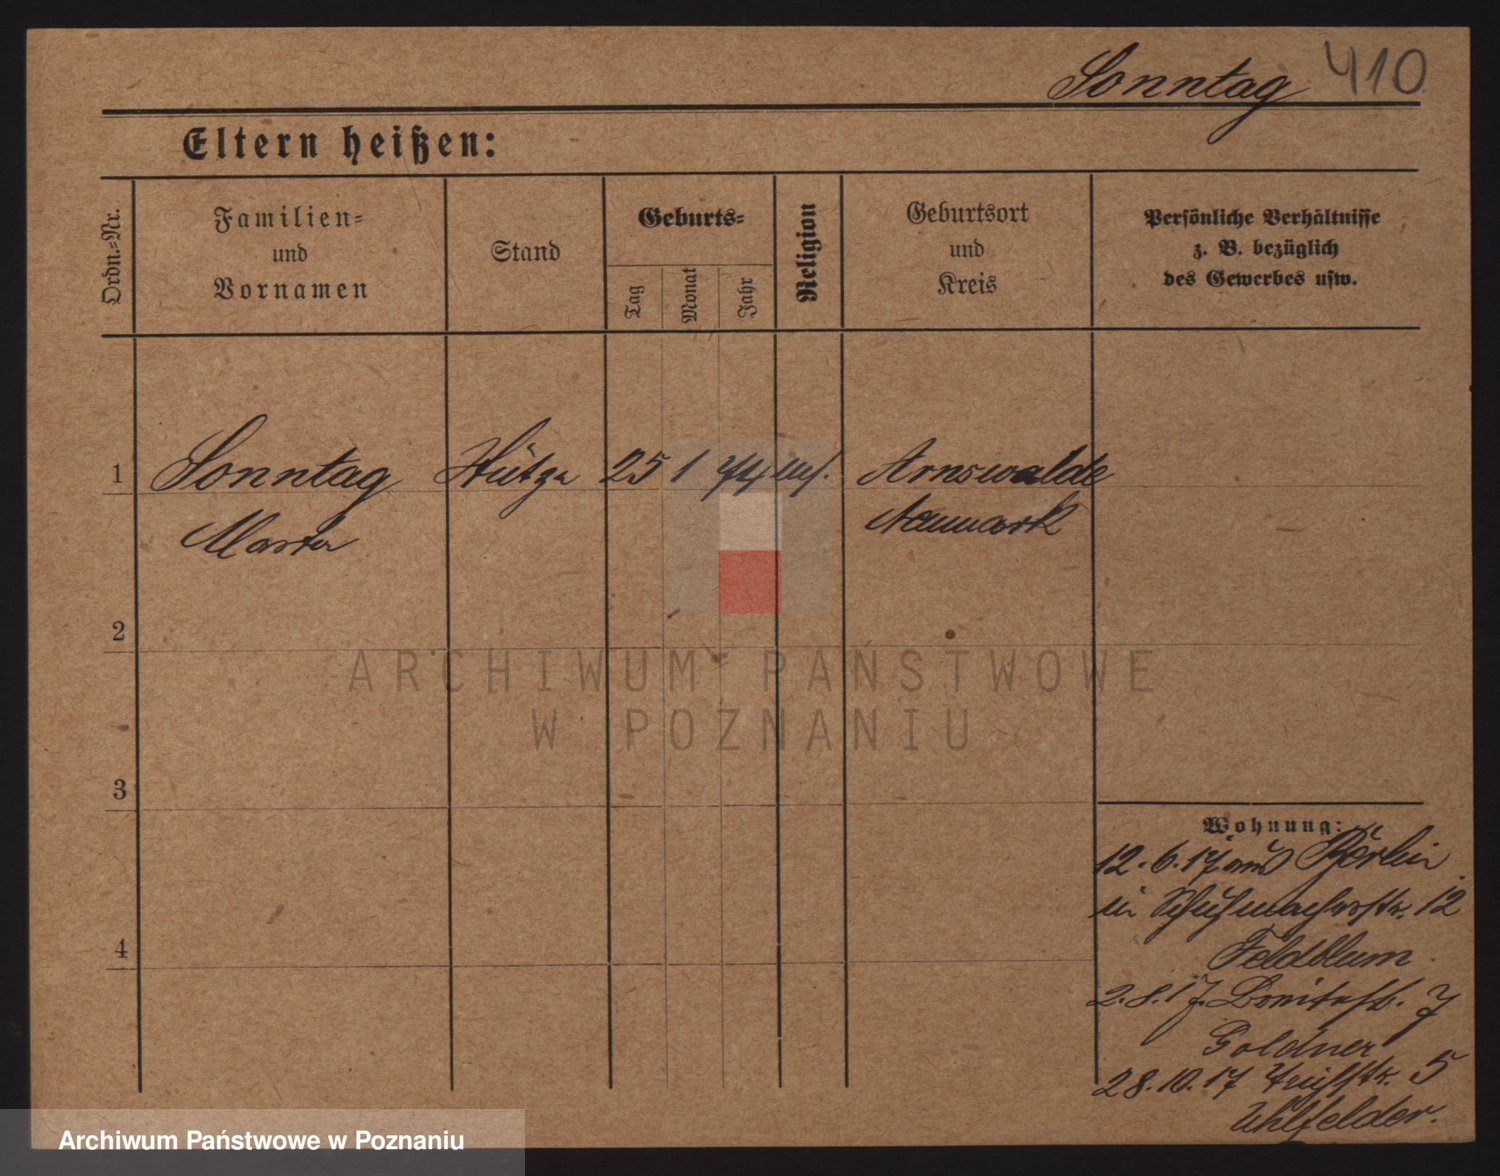 Sonntag 410
Eltern heißen:
Ordn.=Nr.
Familien=
und
Vornamen
Stand
Geburts=
Tag
Monat
Jahr
Religion
Geburtsort
und
Kreis
Persönliche Verhältnisse
z. B. bezüglich
des Gewerbes usw.
1 Sonntag Stütze 25 1 Arnswalde
Neumark
2
3
4
Wohnung:
12.6.17 aus Berlin
in Schuhmacherstr. 12
Feldblum
2.8.17. Breitestr. 7
Goldner
28.10.17 5
Uhlfelder.
ARCHIWUM PAŃSTWOWE
W POZNANIU
Archiwum Państwowe w Poznaniu